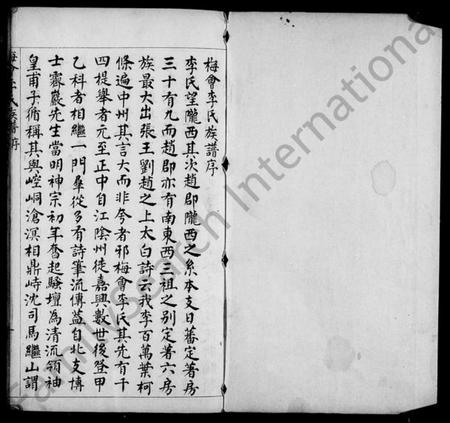 梅會李氏族譜序
李氏望隴西其次趙郡隴西之系本支日蕃定著房
三十有九而趙郡亦有南東西三祖之別定著六房
族最大出張王劉趙之上太白詩云我李百萬葉柯
條遍中州其言大而非夸者邪梅會李氏其先有千
四提舉者元至正中自江陰州徙嘉興數世後登甲
乙科者相繼一門羣從多有詩筆流傳蓋自北支博
士霽巖先生當明神宗初年奮起騷壇為清流領袖
皇甫子循稱其與崆峒滄溟相鼎峙沈司馬繼山謂
梅會李氏族譜序
FamilySearch International